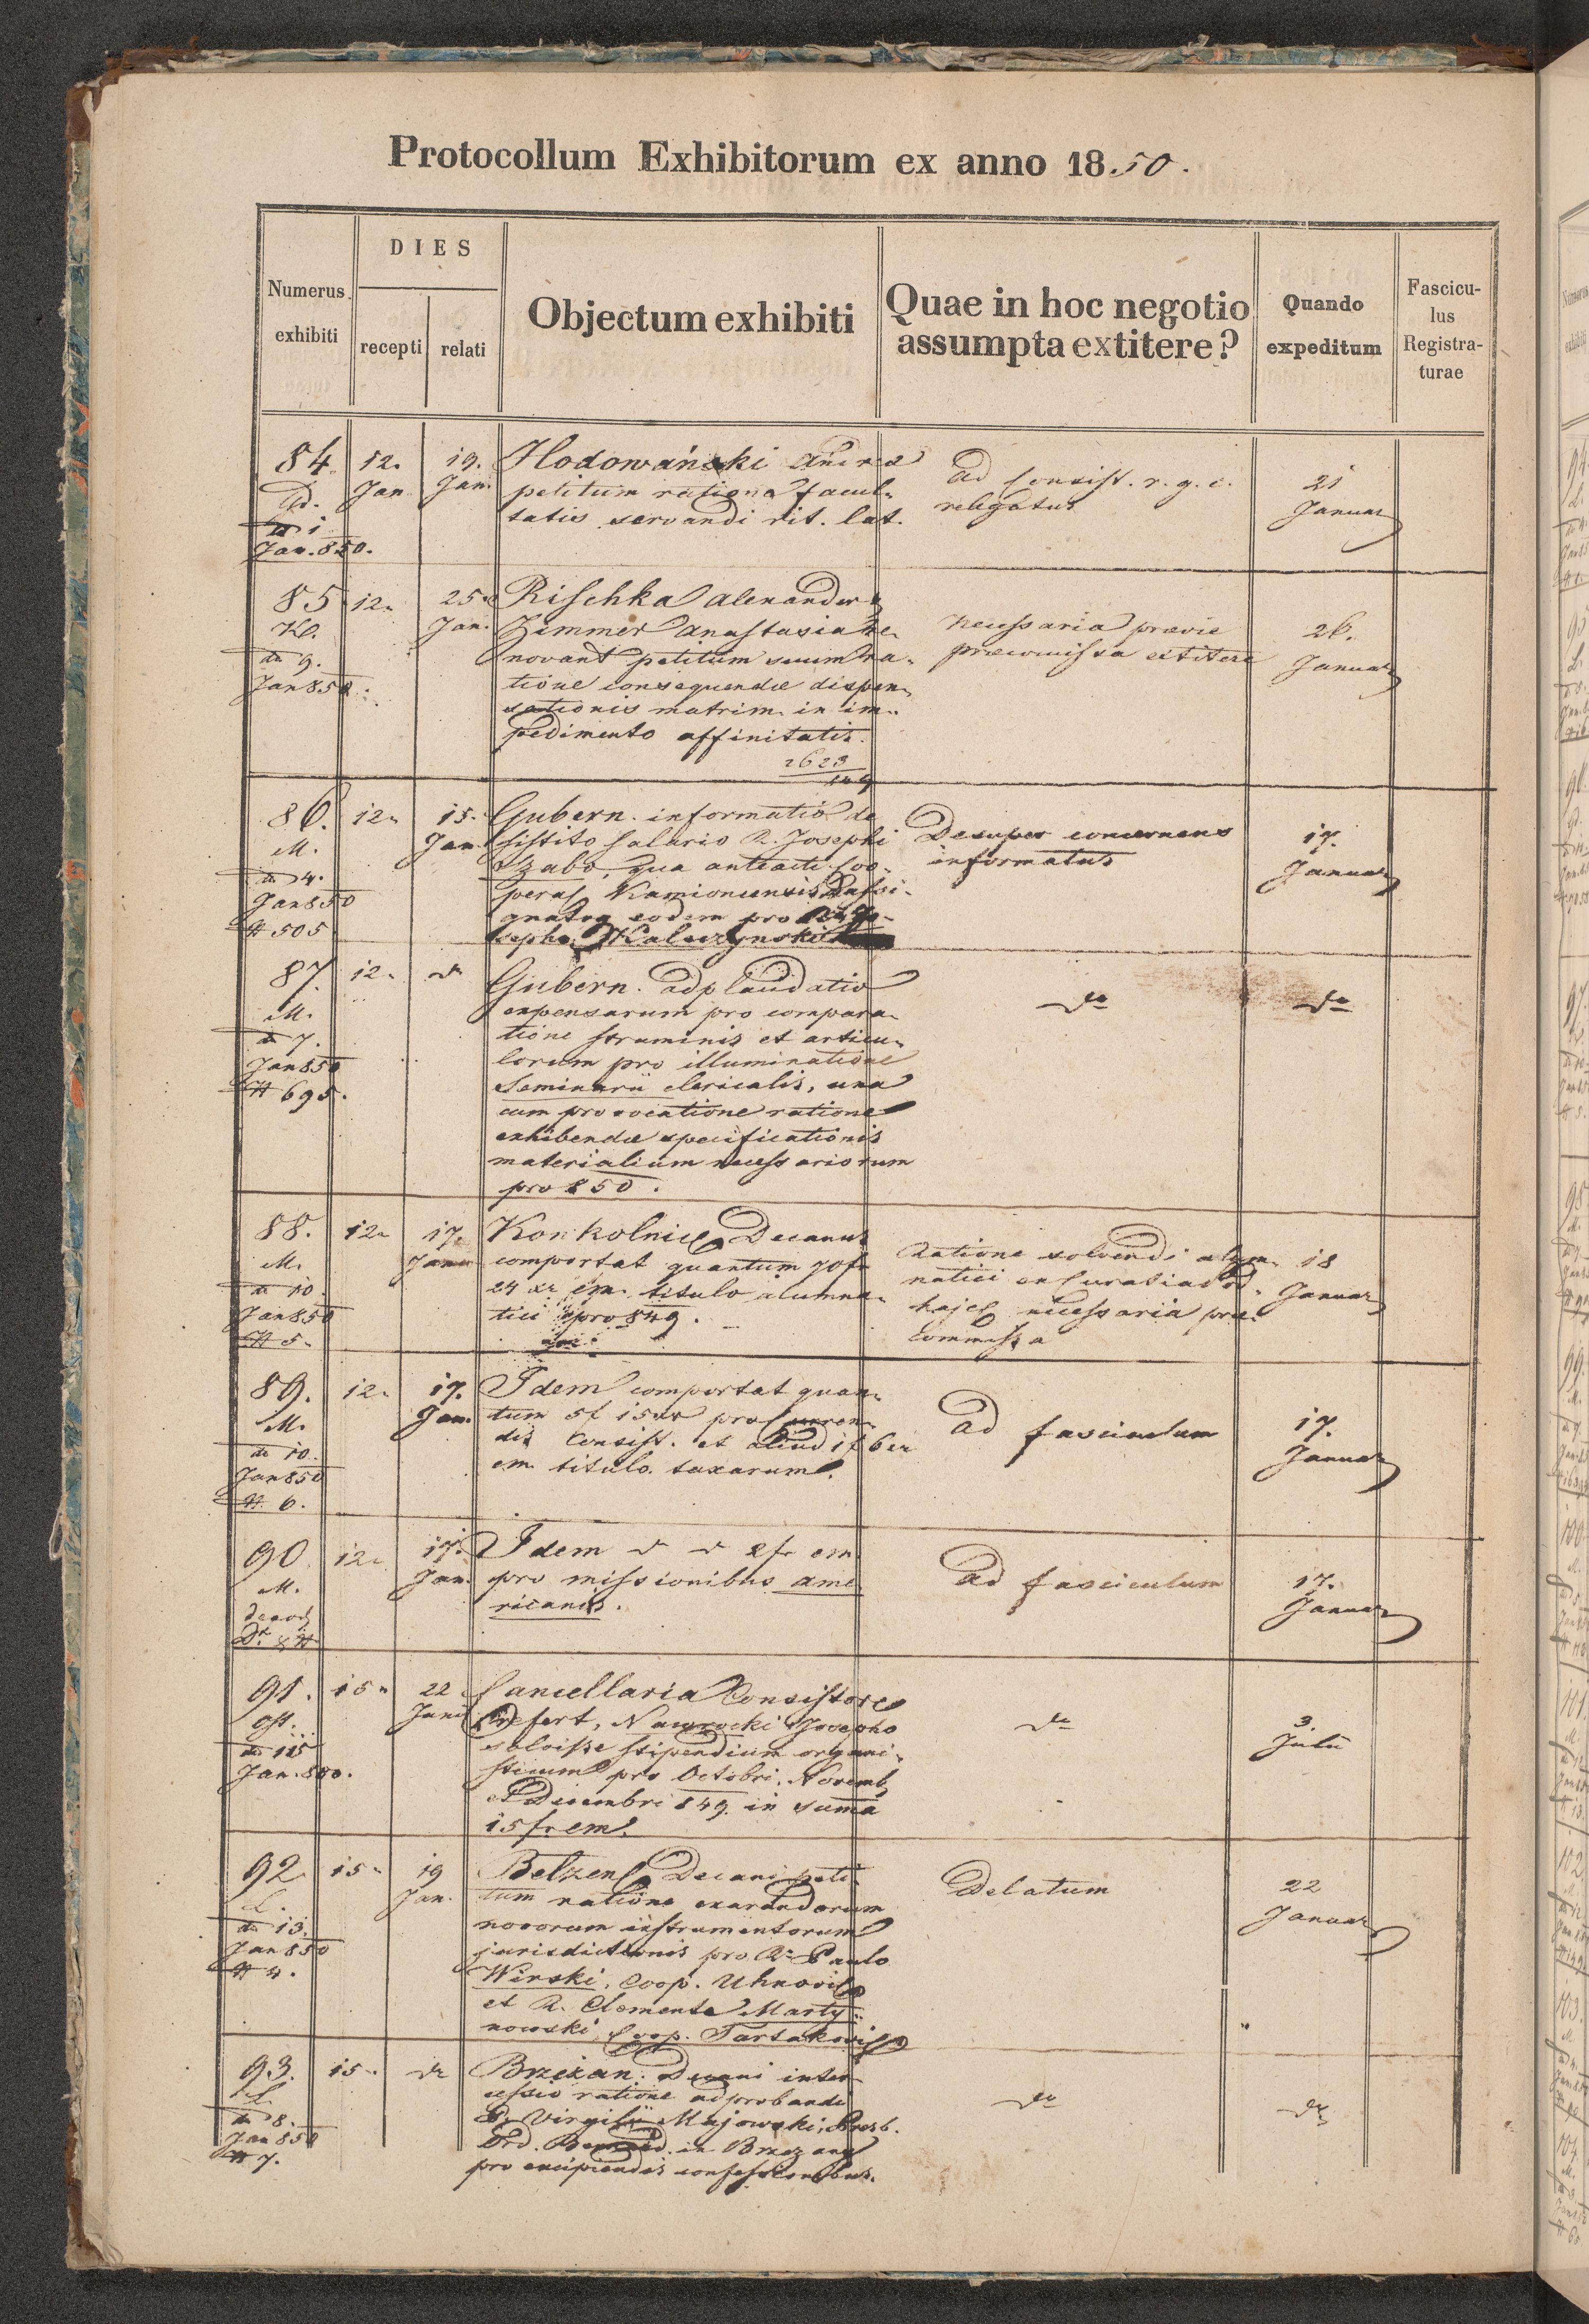 Protocollum Exhibitorum ex anno 1850.
Numerus exhibiti
DIES
recepti
relati
Objectum exhibiti
Quae in hoc negotio
assumpta extitere?
Quando
expeditum
Fascicu-
lus
Registra-
turae
84.
Jan. 850.
12.
Jan
19.
Jan.
Hodowański
petitum ratione facul-
tatis servandi rit. lat.
ad Consist. r. g. c.
relegatus
21
Januar
85
de 9.
Jan 850.
12.
25.
Jan.
Rischka Alexander &
Zimmer Anastasia re-
novant petitum suum ra-
tione consequendae dispen-
sationis matrim. in im-
pedimento affinitatis.
2623
Necessaria praevie
praecommissa extitere
26.
Januar
86.
M.
de 4.
Jan 850
# 505
12.
15.
Jan
Gubern. informatio de
sistito salario R. Josephi
Szabo, qua anteacti Coo-
Kamioncensis
eodem pro
sepho
Desuper concernens
informatus
17.
Januar
87.
M.
de 7.
Jan 850
# 695.
12.
do
Gubern. adplaudatio
expensarum pro compara-
tione straminis et articu-
lorum pro illuminatione
Seminarii clericalis, una
cum provocatione ratione
exhibendae specificationis
materialium necessariorum
pro 850.
do
do
88.
M.
de 10.
Jan 850
# 5.
12.
17.
Janu
Konkolnic Decanus
comportat quantum 70 fr
24 xr em. titulo alumna-
tici pro 849.
Ratione solvendi alum-
natici
necessaria prae-
commissa
18
Januar
89.
M.
de 10.
Jan 850
# 6.
12.
17.
Jan.
Idem comportat quan-
tum 5f 15xr pro Curren-
dis Consist. et aliud 1f 6xr
em. titulo taxarum.
ad fasciculum
17.
Januar
90
M.
12.
17.
Jan.
Idem do do 2 fr em
pro missionibus ame-
ricanis.
ad fasciculum
17.
Januar
91.
Jan. 850.
15.
22
Cancellaria Consistor
refert, Nawrocki Josepho
solvisse stipendium organi-
sticum pro Octobri, Novemb
et Decembri 849. in summa
15 fr em.
do
3.
Julii
92
L.
de 13.
Jan 850
# 4.
15.
19
Jan.
Belzens Decani peti-
tum ratione exarandorum
novorum instrumentorum
jurisdictionis pro R. Paulo
Wirski, Coop. Uhnovi
et R. Clemente Marty-
nowski, Coop. Tartakovi
Delatum
22
Januar
93.
L.
de 8.
Jan 850
# 7.
15.
do
Brzezan. Decani inter-
cessio ratione adprobandi
P. Virgilii Majowski, Presb.
Ord. Bernard. in Brzezany
pro excipiendis confessionibus.
do
do